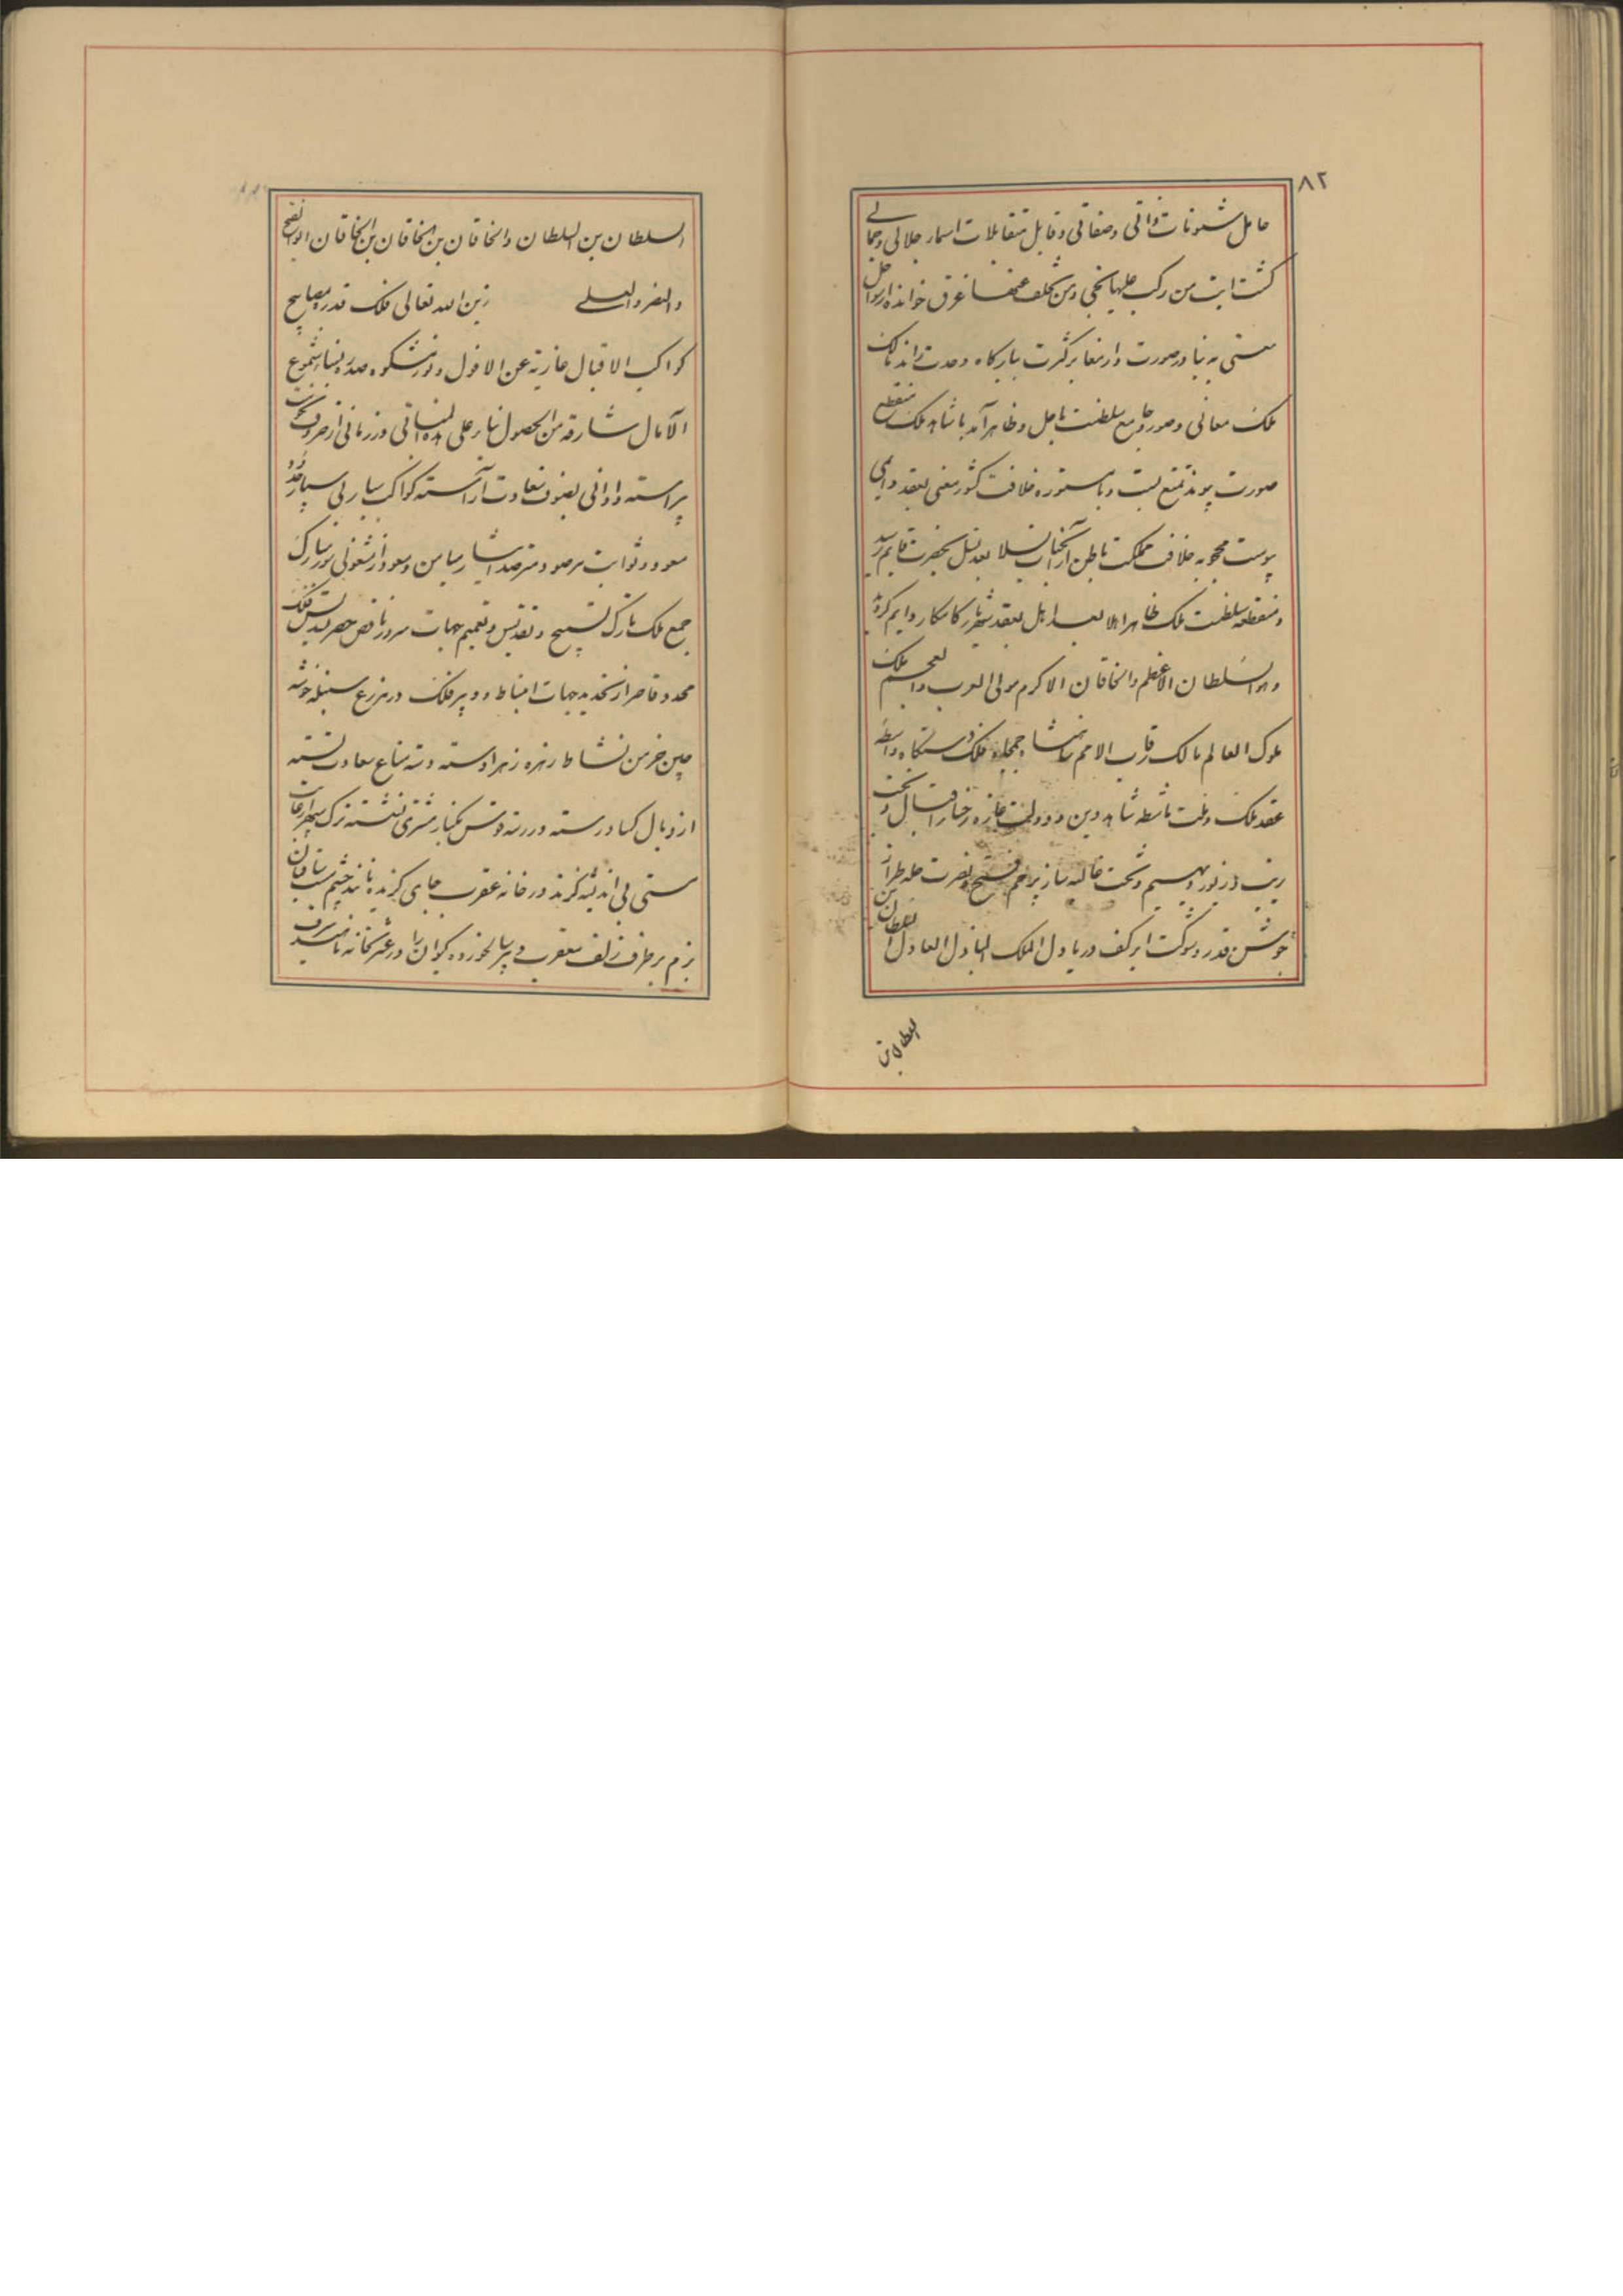 ۸۲
حامل شئونات ذاتی وصفاتی وقابل متقابلات اسمار جلالی وجمالی
گشت ایت من رکب علیها نجی ومن تخلف عنها غرق خوانده از سواحل
هستی به بنا در صورت وار معابر کثرت ببارگاه وحدت راند مالک
ملک معانی وصور جامع سلطنت باطن وظاهر آمد با شاهد ملک منقطع
صورت پیوند تمتع بست وبا مستوره خلافت کشور معنی بعقد دایمی
پیوست محجوبه خلافت مملکت باطن از آنجناب نسلا بعد نسل بحضرت قایم رسید
ومنقطعه سلطنت ملک ظاهر اهلا بعد اهل بعقد شهریار کامکار دایم گردید
وهو السلطان الاعظم والخاقان الاکرم مولی العرب والعجم ملک
ملوک العالم مالک رقاب الامم شاهنشاه جمجاه فلک دستگاه واسطه
عقد ملک وملت ماشطه شاهد دین ودولت غازه رخسار اقبال وبخت
زینت ده زیور دیهیم وتخت غالیه ساز پرچم فتح ونصرت حله طراز
جوشن قدر وشوکت ابر کف دریا دل الملک الباذل العادل السلطان بن
السلطان بن
السلطان بن السلطان والخاقان بن الخاقان بن الخاقان ابو الفتح
والنصر والعلی زین الله تعالی فلک قدره بمصابیح
کواکب الاقبال عازبة عن الافول ونور مشکوه صدره بضیاء شموع
الآمال شارقة من الحصول بنا بر علی هذا المبانی در زمانی از صروف نکوبت
پیراسته واوانی بصنوف سعادت آراسته کواکب سیار لی سیار
سعود وثوابت مرصود مترصد ایثار میامن وسعود از شغولی
جمع ملک تارک تسبیح وتقدیس وتعمیم جهات سرور ناقص حصر تسدیس فلک
محدد قاصر از تحدید جهات انبساط ودبیر فلک در مزرع سنبله خوشه
چین خرمن نشاط زهره زهرا دسته دسته متاع سعادت بسته
از وبال کساد رسته در رسته قوس بکنار مشتری نشسته ترک سپهر از غایت
مستی بی اندیشه گزند در خانه عقرب جای گزیده مانند چشم ساقیان
بزم بر طرف زلف معقرب وپیر سالخورده کیوان را در عشرتخانه